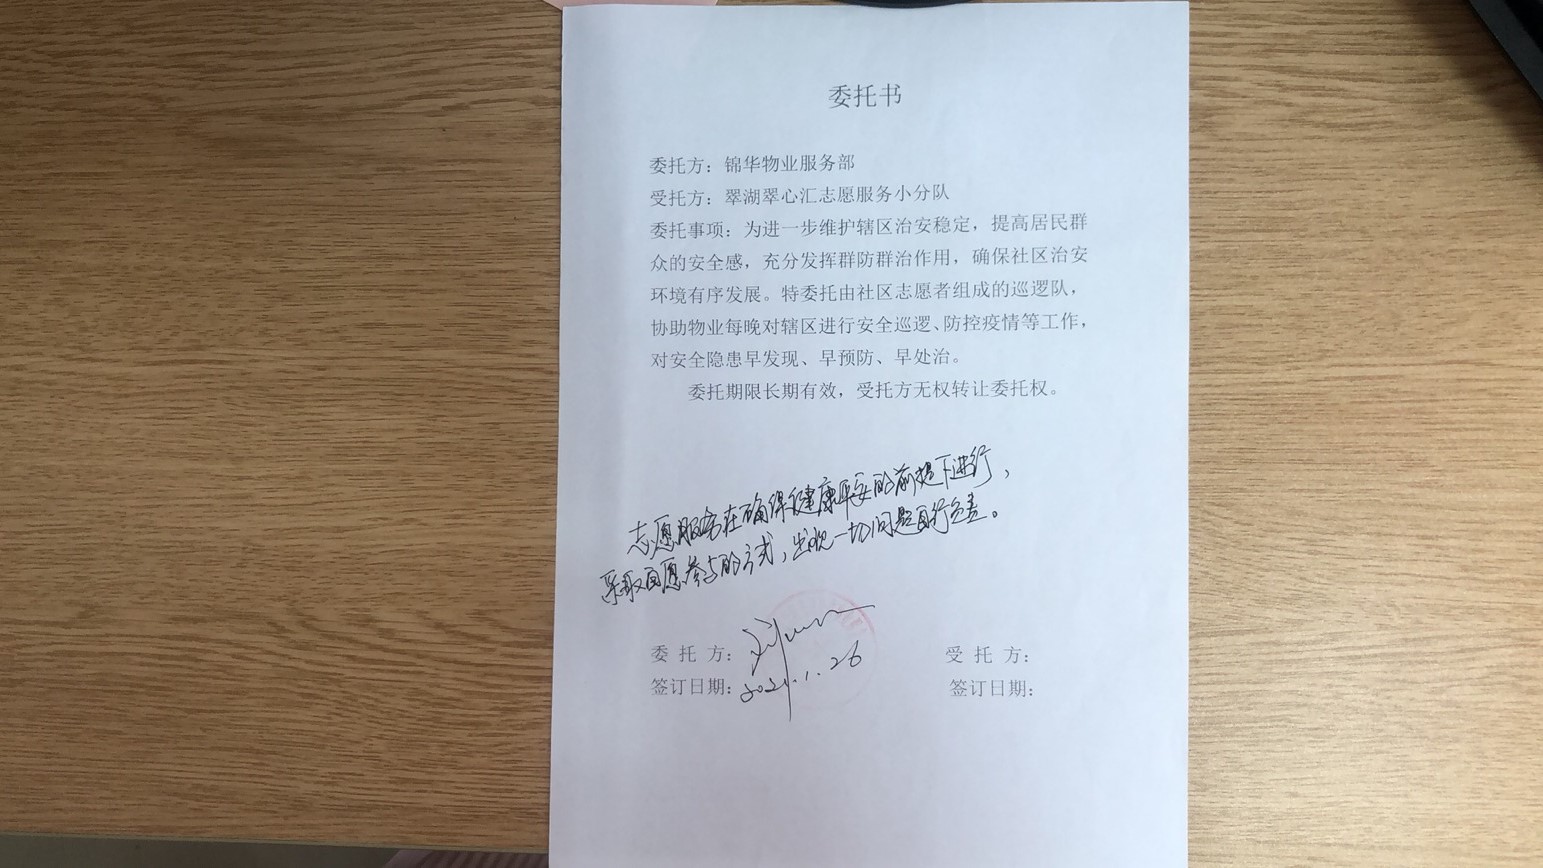 委托书
委托方：锦华物业服务部
受托方：翠湖翠心汇志愿服务小分队
委托事项：为进一步维护辖区治安稳定，提高居民群
众的安全感，充分发挥群防群治作用，确保社区治安
环境有序发展。特委托由社区志愿者组成的巡逻队，
协助物业每晚对辖区进行安全巡逻、防控疫情等工作，
对安全隐患早发现、早预防、早处治。
委托期限长期有效，受托方无权转让委托权。
志愿服务在确保健康平安的前提下进行，
采取自愿参与的方式，出现一切问题自行负责。
委 托 方：
受 托 方：
签订日期：2021.1.26
签订日期：